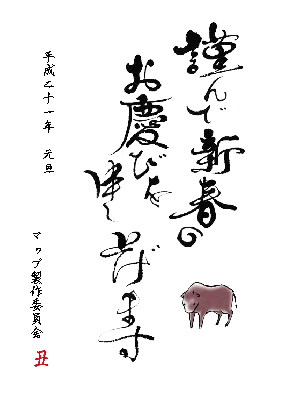 謹んで新春の
お慶びを
申し上げます
平成二十一年 元旦
マップ製作委員会
丑